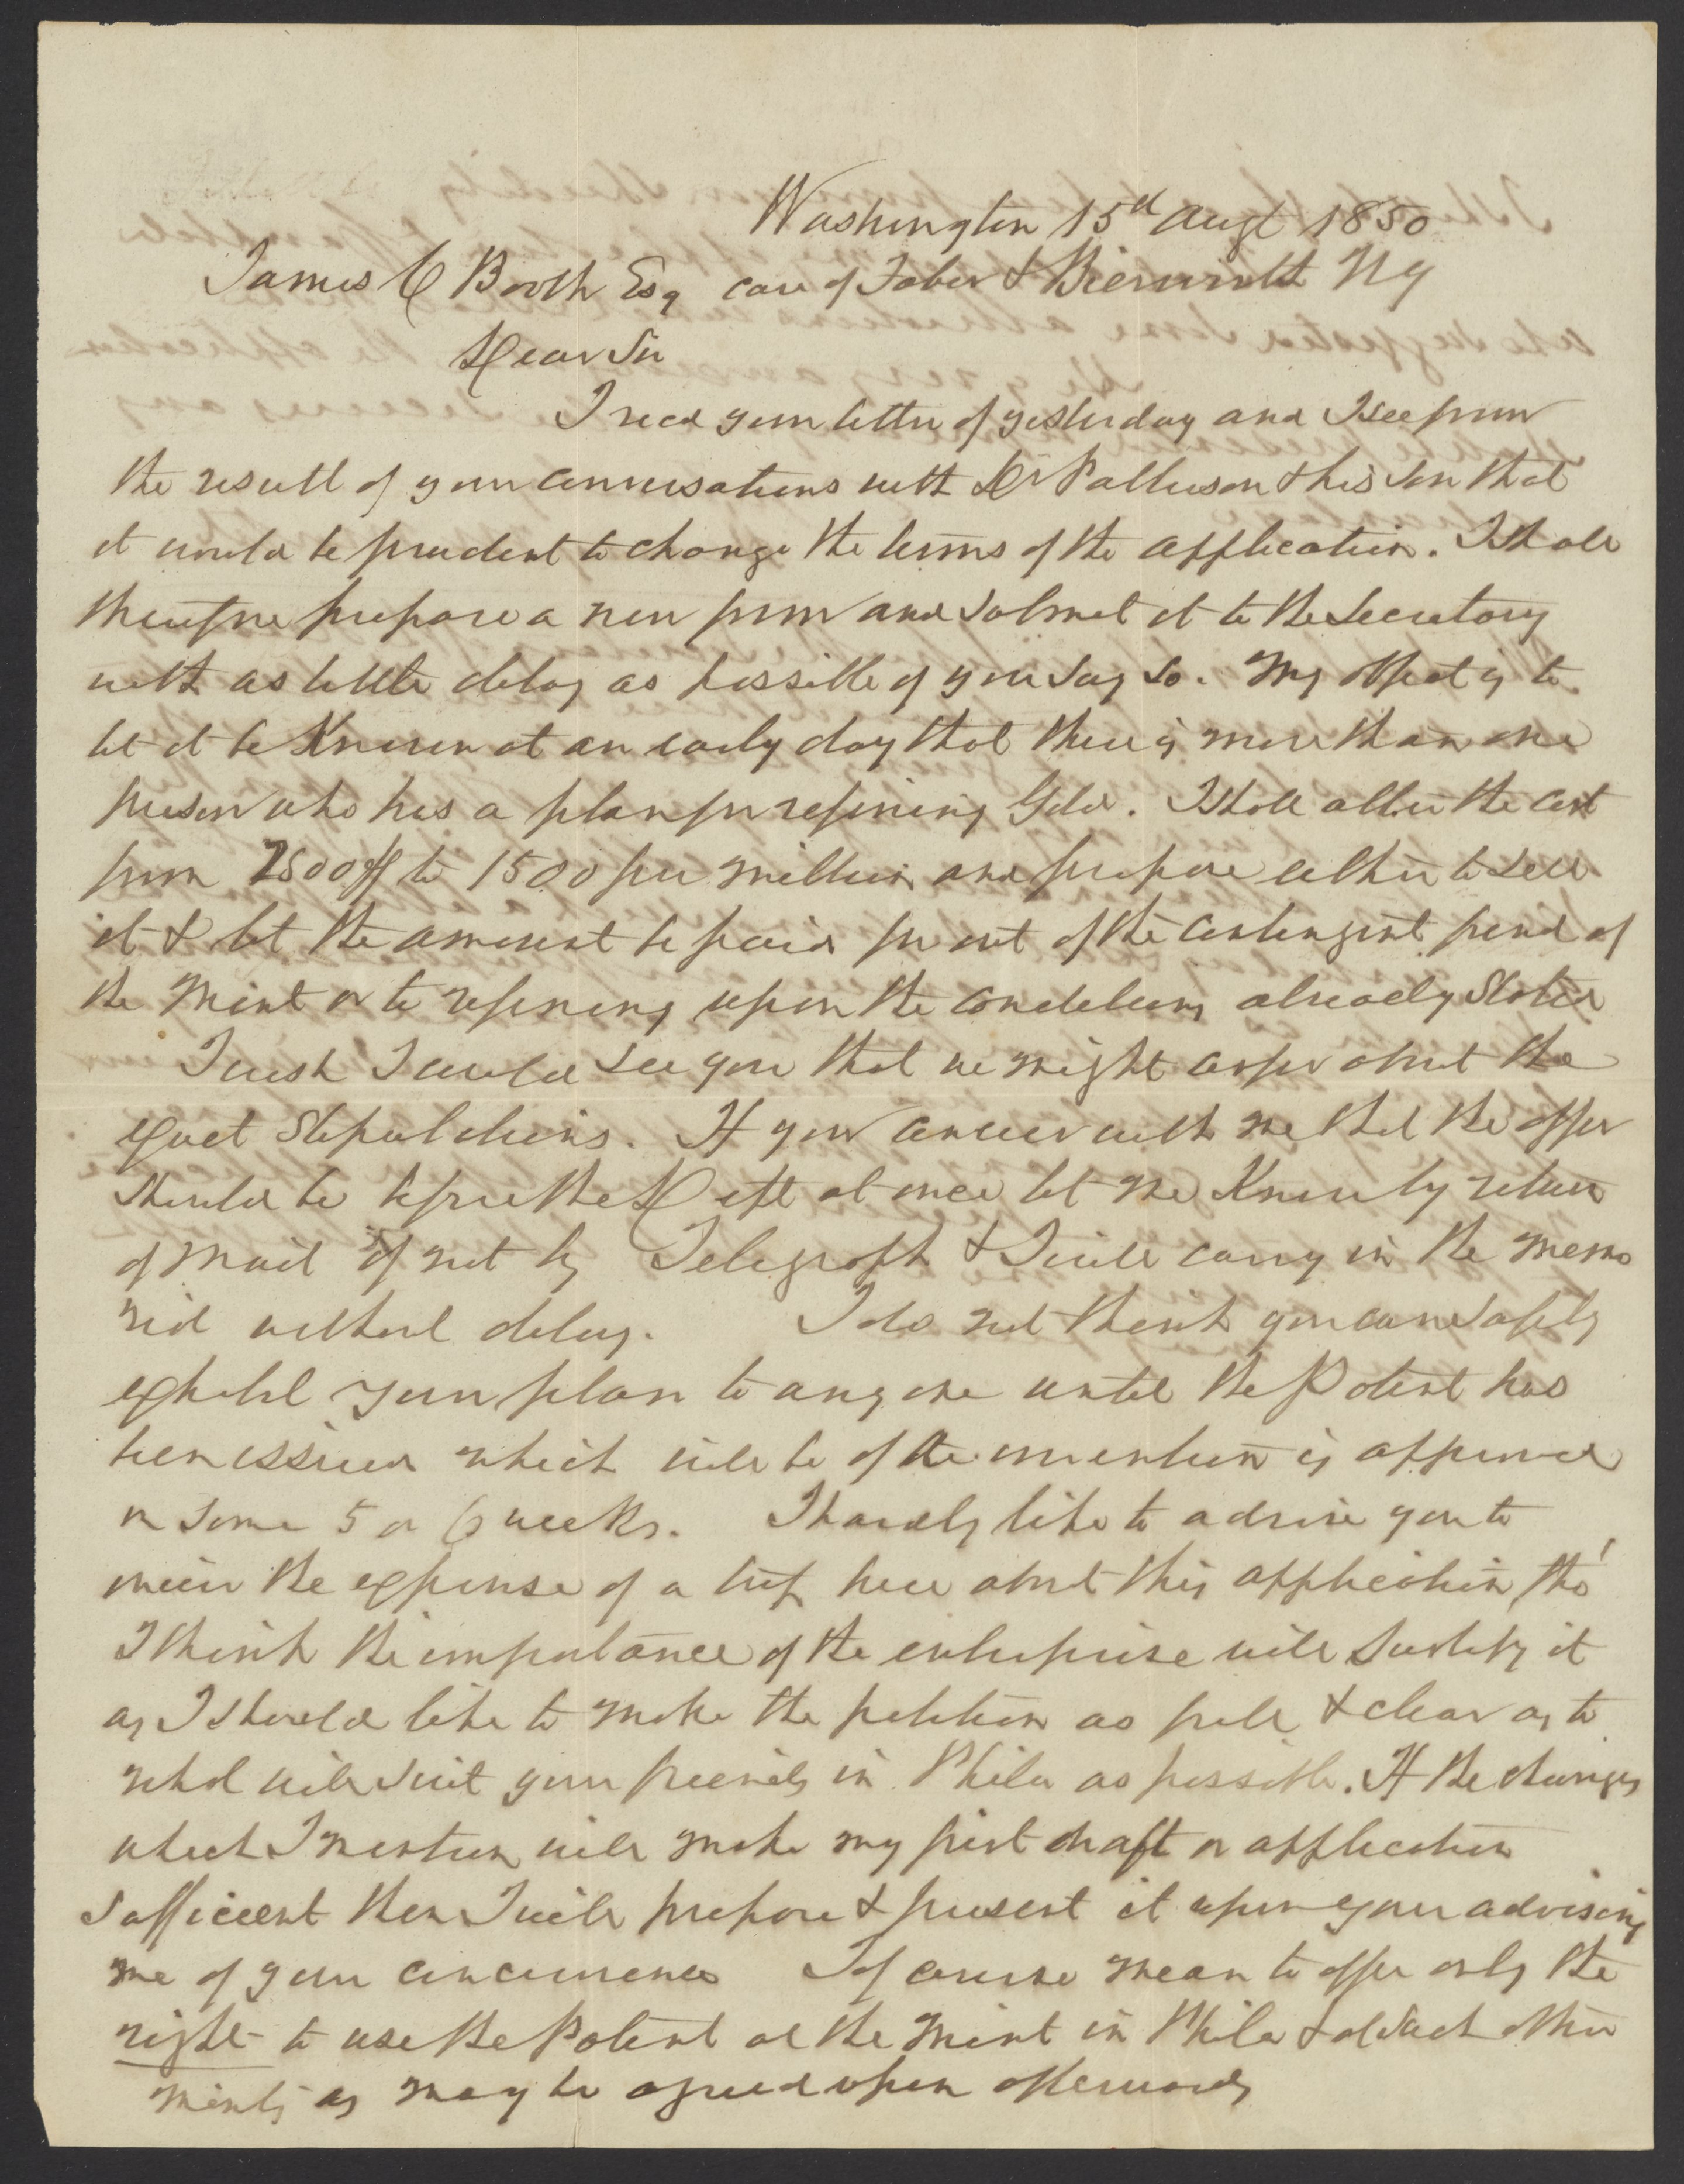 Washington 15th Augt 1850
James C Booth Esq care of Faber & Bierwirth NY
Dear Sir
I recd your letter of yesterday and I see from
the result of your conversations with Dr Patterson & his son that
it would be prudent to change the terms of the application. I shall
therefore prepare a new form and submit it to the Secretary
with as little delay as possible if you say so. My object is to
let it be Known at an early day that there is more than one
person who has a plan for refining Gold. I shall alter the cost
from 2500$ to 1500 per million and propose either to sell
it & let the amount be paid for out of the contingent fund of
the Mint or to refining upon the conditions already stated
I wish I could see you that we might confer about the
exact stipulations. If you concur with me that the offer
should be before the Dept at once let me Know by return
of mail if not by Telegraph & I will carry in the memo
rial without delay. I do not think you can safely
exhibit your plan to any one until the Patent has
been issued which will be if the invention is approved
in some 5 or 6 weeks. I hardly like to advise you to
incur the expense of a trip here about this application, tho'
I think the importance of the enterprise will justify it
as I should like to make the petition as full & clear as to
what will suit your friends in Phila as possible. If the changes
which I mention will make my first draft or application
sufficient then I will prepare & present it upon your advising
me of your concurrence I of course mean to offer only the
right to use the Patent at the Mint in Phila & at such other
mints as may be agreed upon afterwards